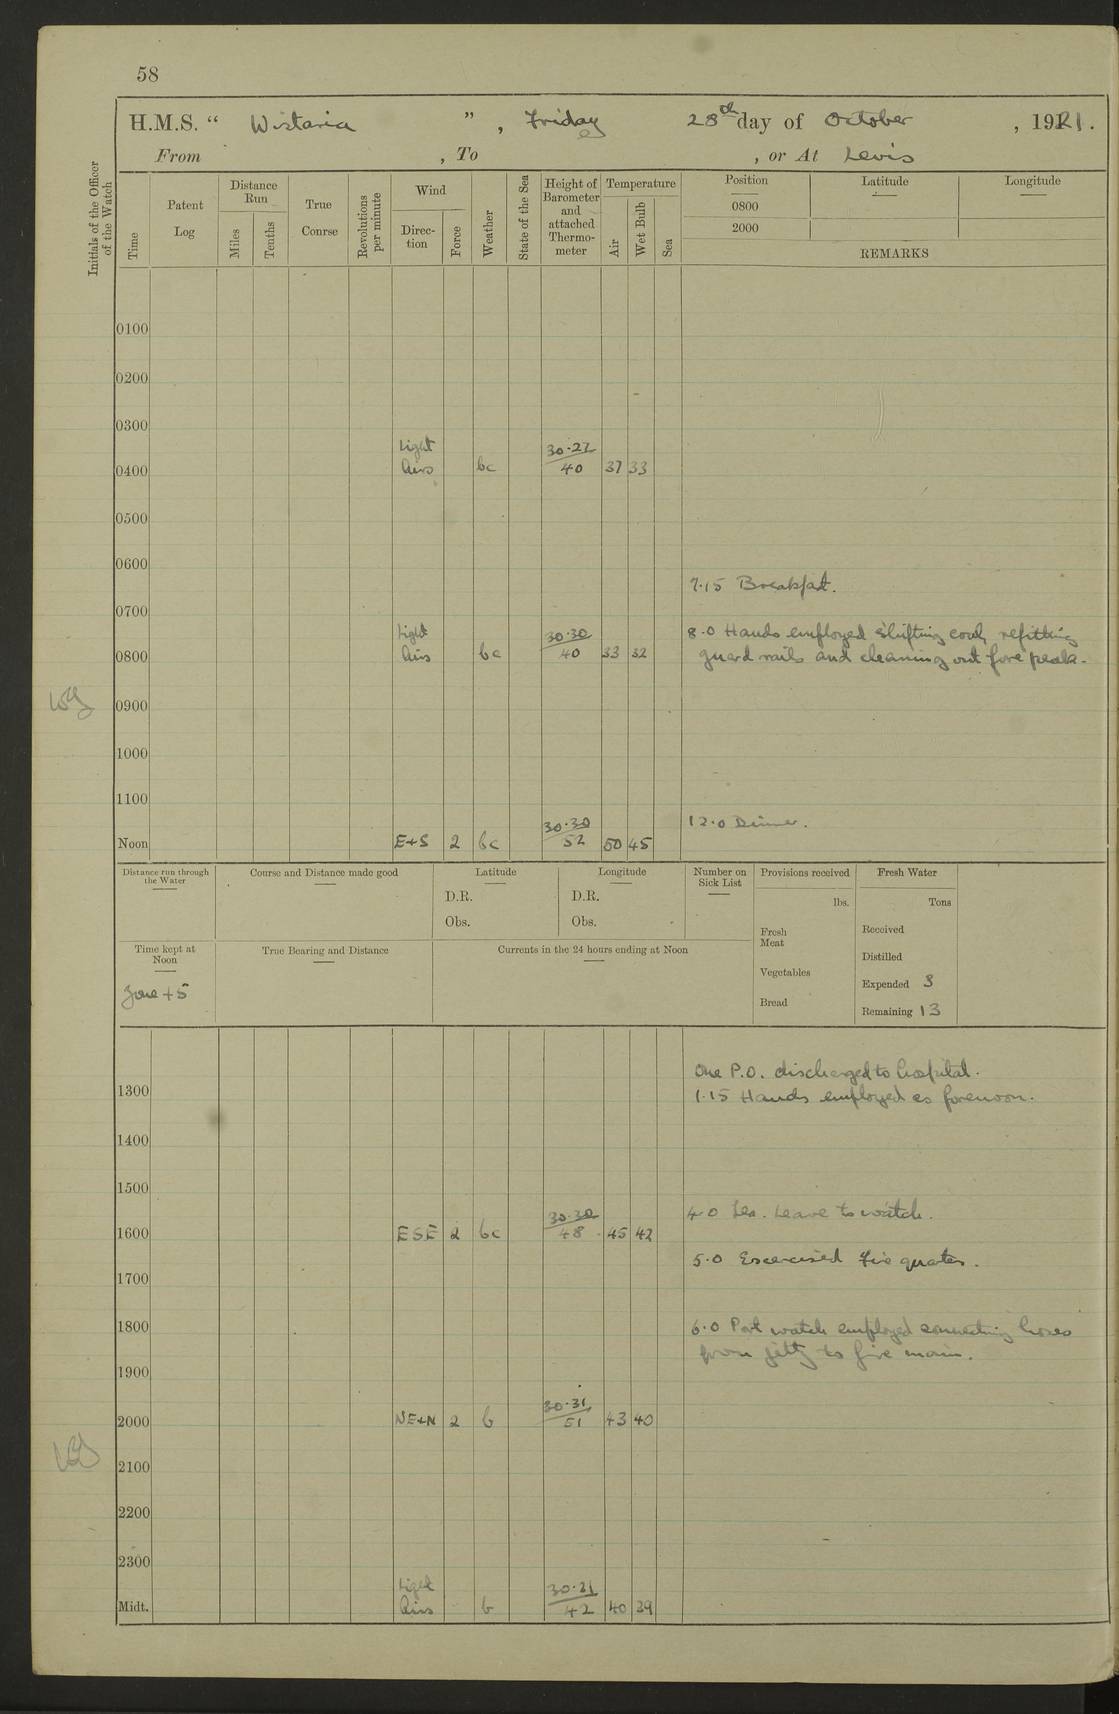 58
H.M.S. " Wistaria ", Friday 28th day of October, 1921.
From , To , or At Levis
Initials of the Officer of the Watch
Time
Patent Log
Distance Run
Miles
Tenths
True Conrse
Revolutions per minute
Wind
Direc-tion
Force
Weather
State of the Sea
Height of Barometer and attached Thermo-meter
Temperature
Air
Wet Bulb
Sea
Position Latitude Longitude
0800
2000
REMARKS
0100
0200
0300
0400 Light Airs bc 30·27/40 37 33
0500
0600
7.15 Breakfast.
0700
8.0 Hands employed shifting coal, refitting
guard rails and cleaning out fore peak.
0800 Light Airs bc 30·30/40 33 32
0900
1000
1100
12.0 Dinner.
Noon E+S 2 bc 30·30/52 50 45
Distance run through the Water
Course and Distance made good
Latitude
D.R.
Obs.
Longitude
D.R.
Obs.
Number on Sick List
Provisions received
lbs.
Fresh Meat
Vegetables
Bread
Fresh Water
Tons
Received
Distilled
Expended 3
Remaining 13
Time kept at Noon
Zone +5
True Bearing and Distance
Currents in the 24 hours ending at Noon
One P.O. discharged to hospital.
1300
1.15 Hands employed as forenoon.
1400
1500
4.0 Lea. Leave to watch.
1600 ESE 2 bc 30·30/48 45 42
5.0 Exercised fire quarters.
1700
1800
6.0 Port watch employed connecting hoses
from jetty to fire main.
1900
2000 NE+N 2 b 30·31/51 43 40
2100
2200
2300
Midt. Light Airs b 30·31/42 40 39